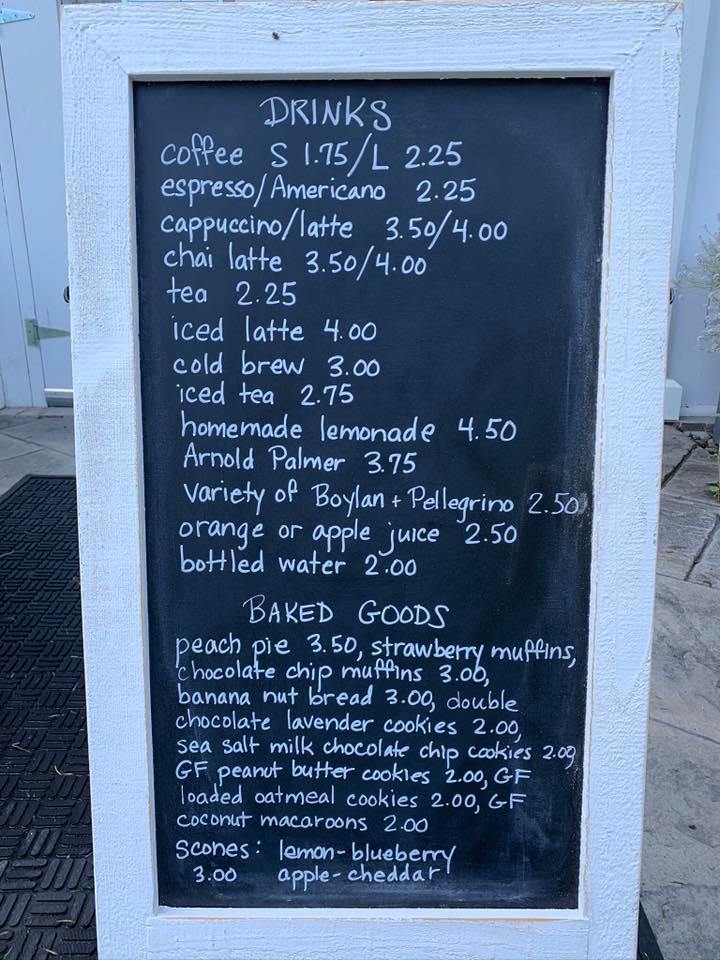 DRINKS
coffee S 1.75/L 2.25
espresso/Americano 2.25
cappuccino/latte 3.50/4.00
chai latte 3.50/4.00
tea 2.25
iced latte 4.00
cold brew 3.00
iced tea 2.75
homemade lemonade 4.50
Arnold Palmer 3.75
Variety of Boylan + Pellegrino 2.50
orange or apple juice 2.50
bottled water 2.00
BAKED GOODS
peach pie 3.50, strawberry muffins,
chocolate chip muffins 3.00,
banana nut bread 3.00, double
chocolate lavender cookies 2.00,
sea salt milk chocolate chip cookies 2.00
GF peanut butter cookies 2.00, GF
loaded oatmeal cookies 2.00, GF
coconut macaroons 2.00
Scones: lemon-blueberry
3.00 apple-cheddar